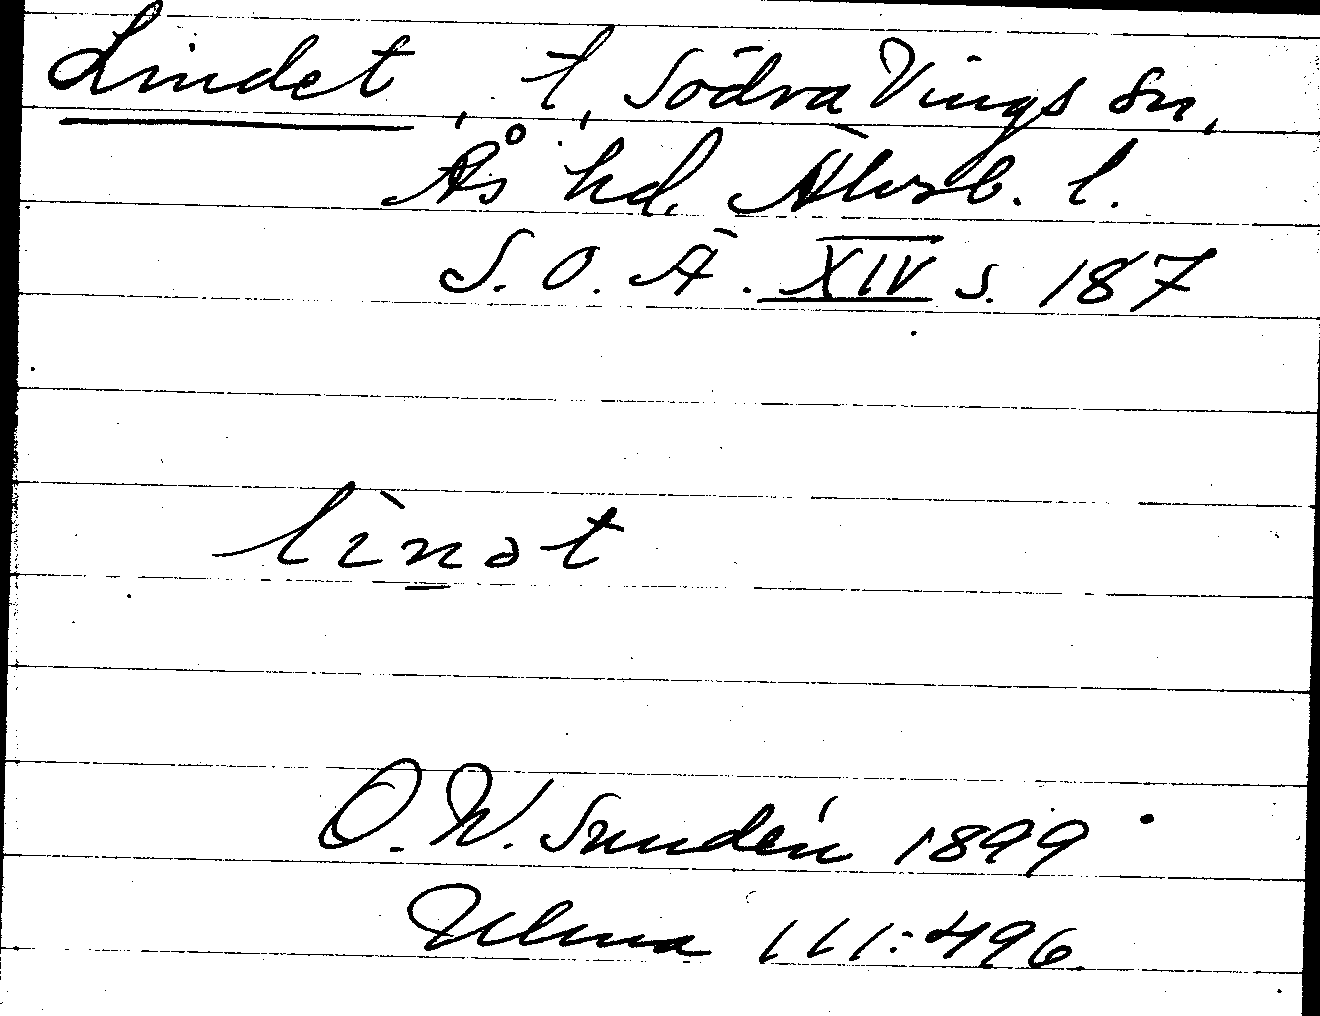 Lindet, t, Södra Vings sn,
Ås hd. Älvsb. l.
S. O. Ä. XIV s. 187
lìnət
O. W. Sundén 1899
Ulma 111:496.